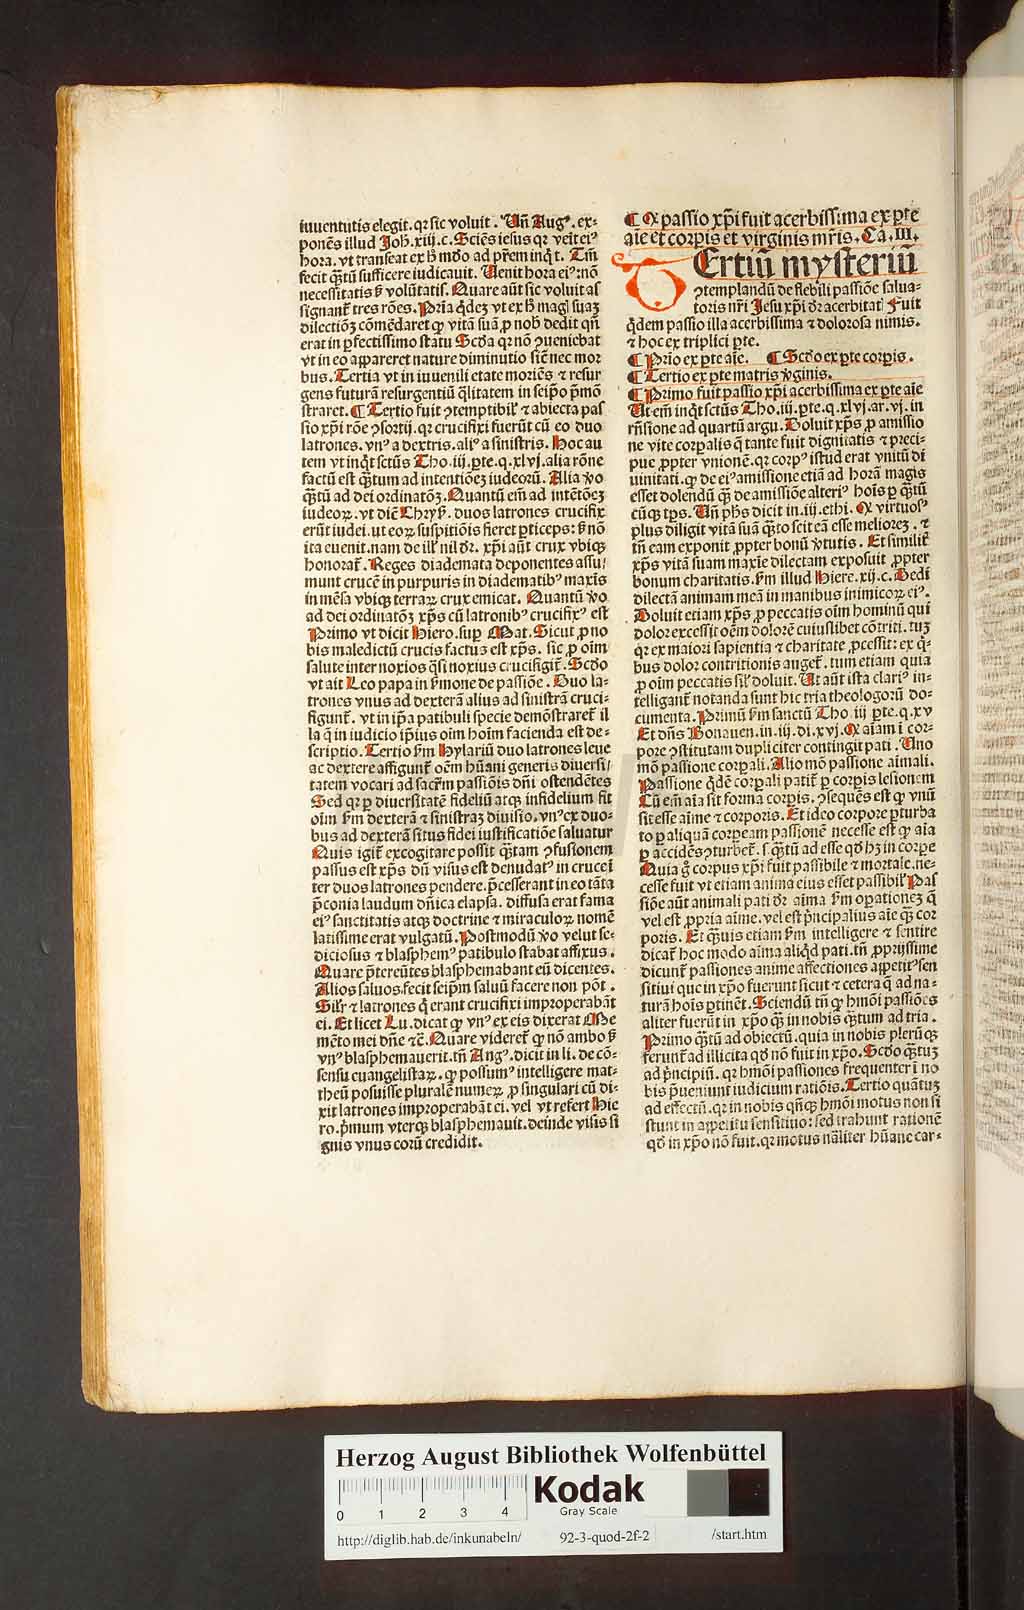 iuuentutis elegit. qꝛ sic voluit. Vn̄ Augꝰ. ex-
ponēs illud Joh. xiij. c. Sciēs iesus qꝛ venit eiꝰ
hora. vt transeat ex h̄ mūdo ad pr̄em inq̇t. Tm̄
fecit q̄ꝫtū sufficere iudicauit. Uenit hora eiꝰ: nō
necessitatis ꝫ volūtatis. Quare aūt sic voluit aſ
signant̄ tres rōes. Pꝛīa q̇deꝫ vt ex h̄ magꝭ suaꝫ
dilectiōꝫ cōmēdaret ꝙ vitā suā ꝓ nobꝭ dedit qn̄
erat in ꝑfectissimo statu Scd̄a qꝛ nō ꝯueniebat
vt in eo appareret nature diminutio sic̄ nec moꝛ
bus. Tertia vt in iuuenili etate moꝛiēs ⁊ resur
gens futurā resurgentiū q̄litatem in seip̄o pꝛi̅mō
straret. ¶ Tertio fuit ꝯtemptibilꝭ ⁊ abiecta pas
sio xp̄i rōe ꝯsoꝛtij. qꝛ crucifixi fuerūt cū eo duo
latrones. vnꝰ a dextris. aliꝰ a sinistris. Hoc au
tem vt inq̇t sctūs Tho. iij. ꝑte. q. xlvj. alia rōne
factū est q̄ꝫtum ad intentiōeꝫ iudeoꝛū. Alia ꝟo
q̄ꝫtū ad dei oꝛdinatōꝫ. Quantū em̄ ad intētōeꝫ
iudeoꝝ. vt dic̄ Chryꝭ. duos latrones crucifix
erūt iudei. ut eoꝝ suspitiōis fieret ꝑticeps: ꝫ nō
ita euenit. nam de illꝭ nil dr̄. xp̄i aūt crux vbiqꝫ
honoꝛat̄. Reges diademata deponentes assu/
munt crucē in purpuris in diadematibꝰ maxīs
in mēsa vbiqꝫ terraꝝ crux emicat. Quantū ꝟo
ad dei oꝛdinatōꝫ xp̄s cū latronibꝰ crucifixꝰ est
Pꝛimo vt dicit Hiero. suꝑ Mat. Sicut ꝓ no
bis maledictū crucis factus est xp̄s. sic ꝓ oīm
salute inter noxios q̄si noxius crucifigit̄. Scd̄o
vt ait Leo papa in ẜmone de passiōe. Duo la-
trones vnus ad dexterā alius ad sinistrā cruci-
figunt̄. vt in ip̄a patibuli specie demōstraret̄ il
la q̄ in iudicio ip̄ius oīm hoīm facienda est de-
scriptio. Tertio ẜm Hylariū duo latrones leue
ac dextere affigunt̄ oēm hūani generis diuersi/
tatem vocari ad sacr̄m passiōis dn̄i ostendētes
Sed qꝛ ꝑ diuersitatē fideliū atqꝫ infidelium fit
oīm ẜm dexterā ⁊ sinistraꝫ diuisio. vnꝰ ex duo-
bus ad dexterā situs fidei iustificatiōe saluatur
Quis igit̄ excogitare possit q̄ꝫtam ꝯfusionem
passus est xp̄s dū visus est denudatꝰ in cruce ī
ter duos latrones pendere. pꝛ̄cesserant in eo tāta
pꝛ̄conia laudum dn̄ica elapsa. diffusa erat fama
eiꝰ sanctitatis atqꝫ doctrine ⁊ miraculoꝝ nomē
latissime erat vulgatū. Postmodū ꝟo velut se-
diciosus ⁊ blasphemꝰ patibulo stabat affixus.
Quare pꝛ̄tereūtes blasphemabant eū dicentes.
Alios saluos. fecit seip̄m saluū facere non pōt.
Silꝭr ⁊ latrones q̇ erant crucifixi improperabāt
ei. Et licet Lu. dicat ꝙ vnꝰ ex eis dixerat Me
mēto mei dn̄e ⁊c̄. Quare videret̄ ꝙ nō ambo ꝫ
vnꝰ blasphemauerit. tn̄ Augꝰ. dicit in li. de cō-
sensu euangelistaꝝ. ꝙ possumꝰ intelligere mat-
theū posuisse pluralē numeꝝ ꝓ singulari cū di-
xit latrones improperabāt ei. vel vt refert Hie
ro. pꝛimum vterqꝫ blasphemauit. deinde visis si
gnis vnus eoꝛū credidit.
¶ Ꝙ passio xp̄i fuit acerbissima ex ꝑte
aīe et coꝛpꝛis et virginis mr̄is. Ca. III.
TErtiū mysteriū
ꝯtemplandū de flebili passiōe salua-
toris nr̄i Jesu xp̄i dr̄ acerbitatꝭ Fuit
q̇dem passio illa acerbissima ⁊ doloꝛosa nimis.
⁊ hoc ex triplici ꝑte.
¶ Pꝛio ex ꝑte aīe. ¶ Scd̄o ex ꝑte coꝛpis.
¶ Tertio ex ꝑte matris ꝟginis.
¶ Pꝛimo fuit passio xp̄i acerbissima ex ꝑte aīe
Ut em̄ inq̇t sctūs Tho. iij. ꝑte. q. xlvj. ar. vj. in
rn̄sione ad quartū argu. Doluit xp̄s ꝓ amissio
ne vite coꝛpalis q̄ tante fuit dignitatis ⁊ preci-
pue ꝓpter vnionē. qꝛ coꝛpꝰ istud erat vnitū di
uinitati. ꝙ de eiꝰ amissione etiā ad hoꝛā magis
esset dolendū q̄ꝫ de amissiōe alteriꝰ hoīs ꝑ q̄ꝫtū
cūqꝫ tp̄s. Un̄ ph̄s dicit in. iij. ethi. Ꝙ virtuosꝰ
plus diligit vitā suā q̄ꝫto scit eā esse melioꝛeꝫ. ⁊
tn̄ eam exponit ꝓpter bonū ꝟtutis. Et similit̄
xp̄s vitā suam maxīe dilectam exposuit ꝓpter
bonum charitatis. ẜm illud Hiere. xij. c. Dedi
dilectā animam meā in manibus inimicoꝝ eiꝰ.
Doluit etiam xp̄s ꝓ peccatis oīm hominū qui
doloꝛ excessit oēm doloꝛē cuiuslibet cōtriti. tuꝫ
qꝛ ex maioꝛi sapientia ⁊ charitate ꝓcessit: ex q̇-
bus doloꝛ contritionis auget̄. tum etiam quia
ꝓ oīm peccatis silꝭ doluit. Ut aūt ista clariꝰ in-
telligant̄ notanda sunt hic tria theologoꝛū do-
cumenta. Pꝛimū ẜm sanctū Tho. iij ꝑte. q. xv
Et dn̄s Bonauen. in. iij. di. xvj. Ꝙ aīam ī coꝛ-
poꝛe ꝯstitutam dupliciter contingit pati. Uno
mō passione coꝛpali. Alio mō passione aīmali.
Passione q̇dē coꝛpali patit̄ ꝑ coꝛpis lesionem
Cū em̄ aīa sit foꝛma coꝛpis. ꝯsequēs est ꝙ vnū
sit esse aīme ⁊ coꝛpoꝛis. Et ideo coꝛpoꝛe pturba
to ꝑ aliquā coꝛpeam passionē necesse est ꝙ aīa
ꝑ accidēs ꝯturbet̄. s. q̄ꝫtū ad esse qd̄ hꝫ in coꝛpe
Quia g̊ coꝛpus xp̄i fuit passibile ⁊ moꝛtale. ne-
cesse fuit vt etiam anima eius esset passibilꝭ Pas
siōe aūt animali pati dr̄ aīma ẜm opationeꝫ q̄
vel est ꝓpꝛia aīme. vel est pꝛincipalius aīe q̄ꝫ coꝛ
poꝛis. Et q̄ꝫuis etiam ẜm intelligere ⁊ sentire
dicat̄ hoc modo aīma aliqd̄ pati. tn̄ ꝓpꝛijssime
dicunt̄ passiones anime affectiones appetitꝰ sen
sitiui que in xp̄o fuerunt sicut ⁊ cetera q̄ ad na-
turā hoīs ꝑtinēt. Sciendū tn̄ ꝙ hmōi passiōes
aliter fuerūt in xp̄o q̄ꝫ in nobis q̄ꝫtum ad tria.
Pꝛimo q̄ꝫtū ad obiectū. quia in nobis plerūqꝫ
ferunt̄ ad illicita qd̄ nō fuit in xp̄o. Scd̄o q̄ꝫtuꝫ
ad pꝛincipiū. qꝛ hmōi passiones frequenter ī no
bis pꝛ̄ueniunt iudicium ratiōis. Tertio quātuꝫ
ad effectū. qꝛ in nobis qn̄qꝫ hmōi motus non si
stunt in appetitu sensitiuo: sed trahunt rationē
qd̄ in xp̄o nō fuit. qꝛ motus nāliter hūane car-
Herzog August Bibliothek Wolfenbüttel
0 1 2 3 4
Kodak
Gray Scale
http://diglib.hab.de/inkunabeln/ 92-3-quod-2f-2 /start.htm